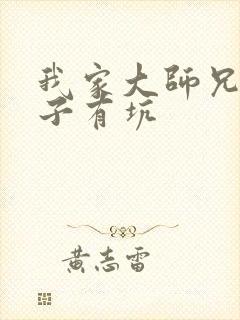 我家大师兄
子有坑
黄志雷